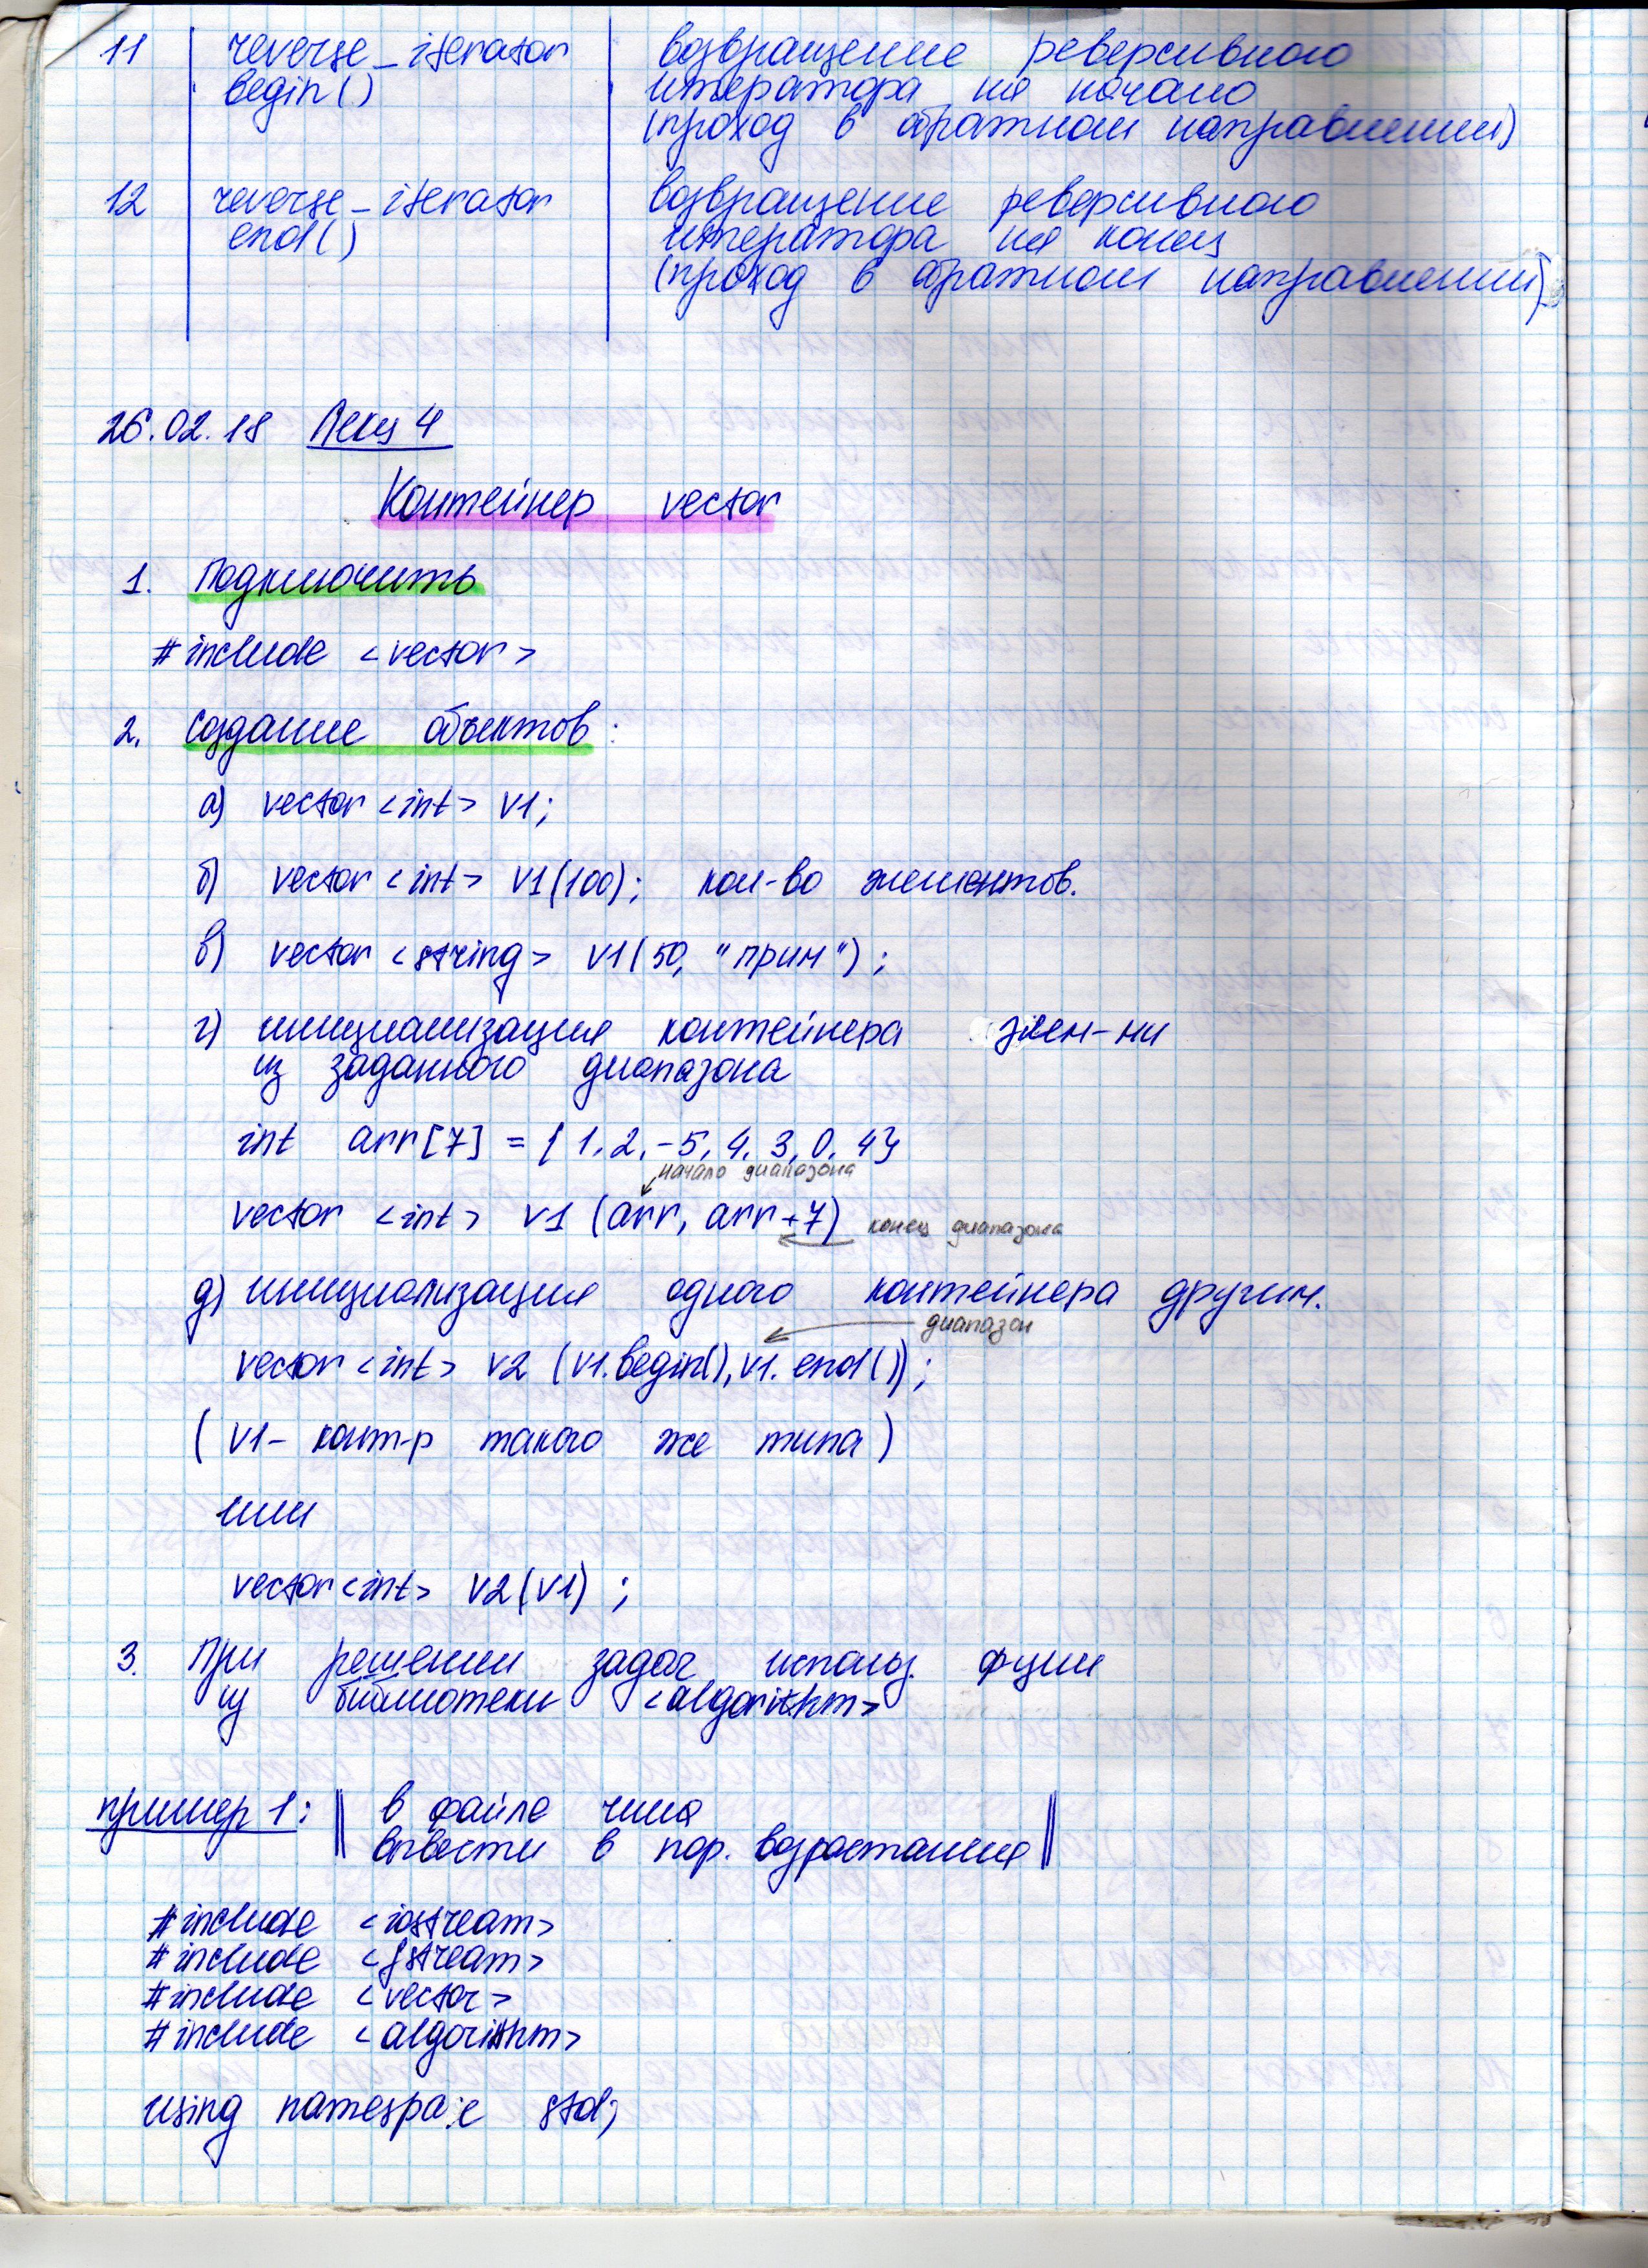 11 reverse_iterator возвращение реверсивного
begin() итератора на начало
(проход в обратном направлении)
12 reverse_iterator возвращение реверсивного
end() итератора на конец
(проход в обратном направлении)
26.02.18 Лекц 4
Контейнер vector
1. Подключить
#include <vector>
2. Создание объектов:
а) vector <int> v1;
б) vector <int> v1(100); кол-во элементов.
в) vector <string> v1(50, "прим");
г) инициализация контейнера элем-ми
из заданного диапазона
int arr[7] = { 1, 2, -5, 4, 3, 0, 4}
начало диапазона
vector <int> v1 (arr, arr+7) конец диапазона
д) инициализация одного контейнера другим.
диапазон
vector <int> v2 (v1.begin(), v1.end());
(v1- конт-р такого же типа)
или
vector <int> v2(v1);
3. При решении задач использ. фции
из библиотеки <algorithm>
пример 1: || в файле числа
вывести в пор. возрастания ||
#include <iostream>
#include <fstream>
#include <vector>
#include <algorithm>
using namespace std;